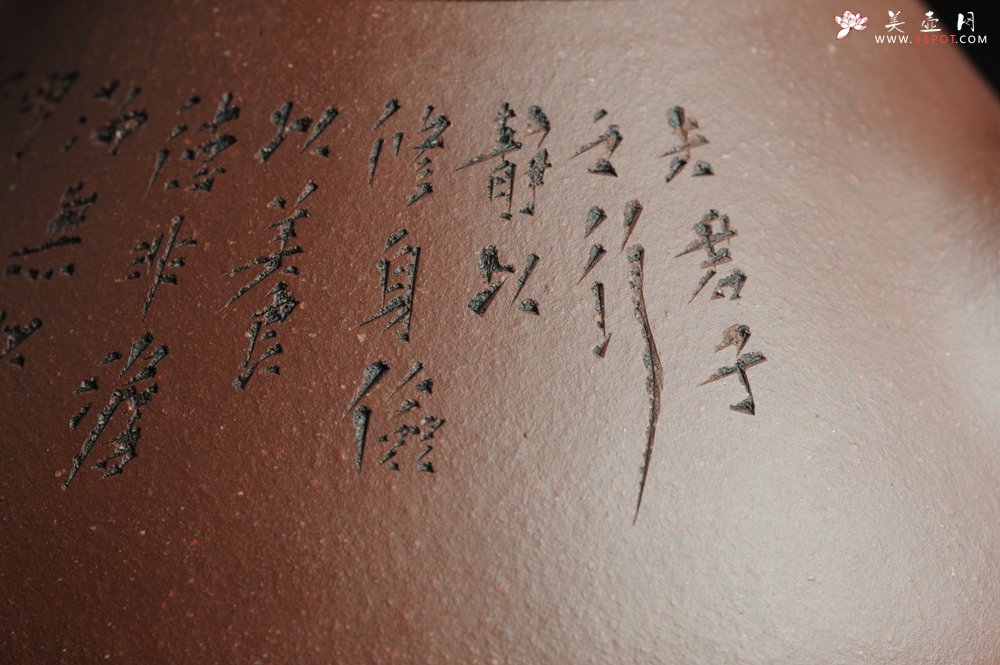 夫君子
之行
靜以
修身儉
以養
德非澹
泊無
美壶网
WWW.51POT.COM